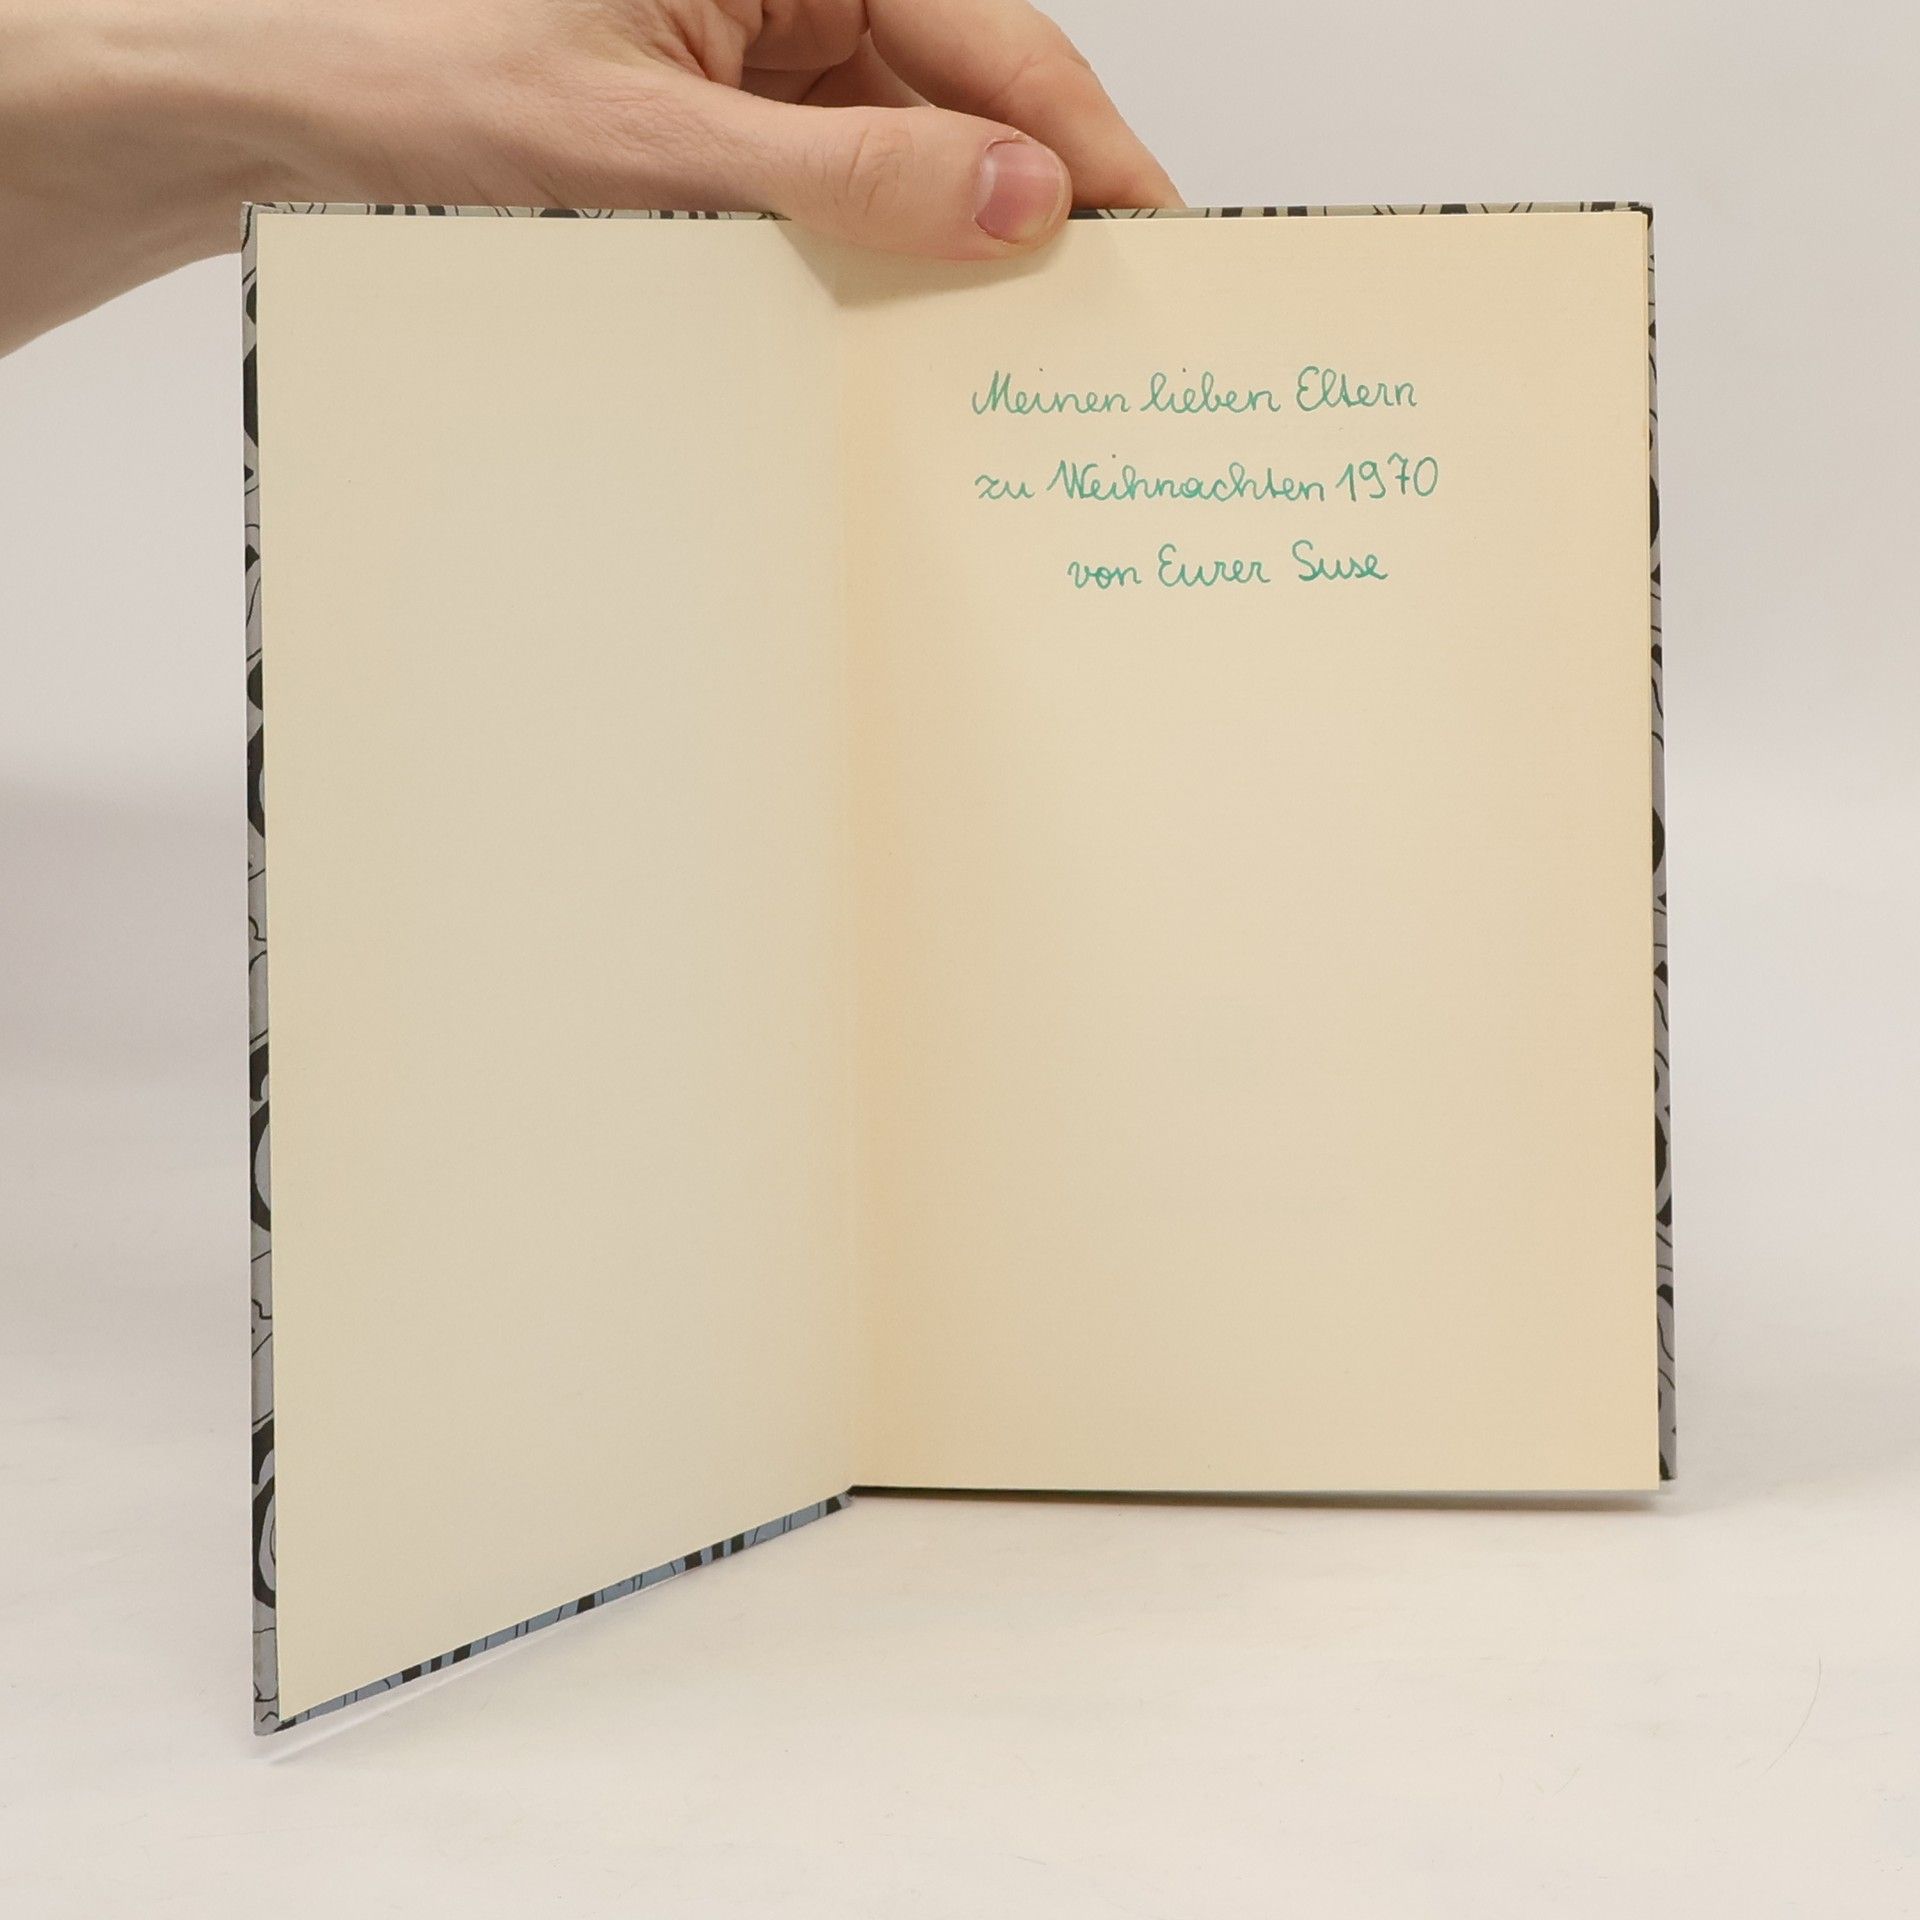 Meinen lieben Eltern
zu Weihnachten 1970
von Eurer Suse